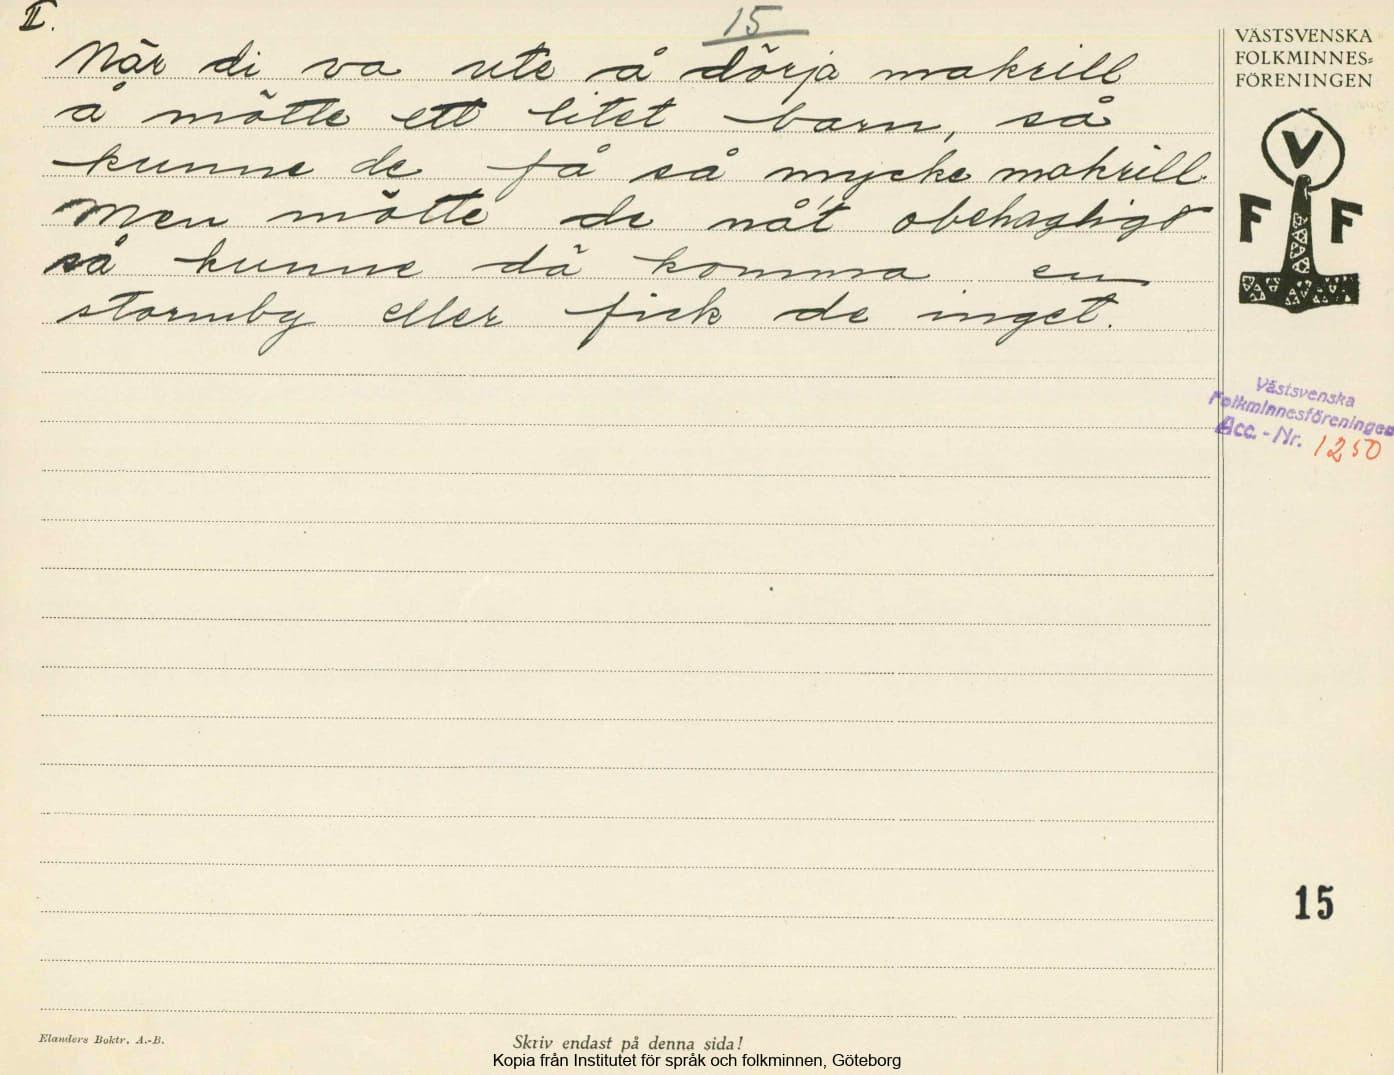 II.
15
När di va ute å dörja makrill
å mötte ett litet barn, så
kunne de få så mycke makrill.
Men mötte de nåt obehagligt
så kunne då komma en
stormby eller fick de inget.
VÄSTSVENSKA
FOLKMINNES=
FÖRENINGEN
V
F F
Västsvenska
Folkminnesföreningen
Acc. - Nr. 1250
15
Elanders Boktr. A.-B.
Skriv endast på denna sida!
Kopia från Institutet för språk och folkminnen, Göteborg